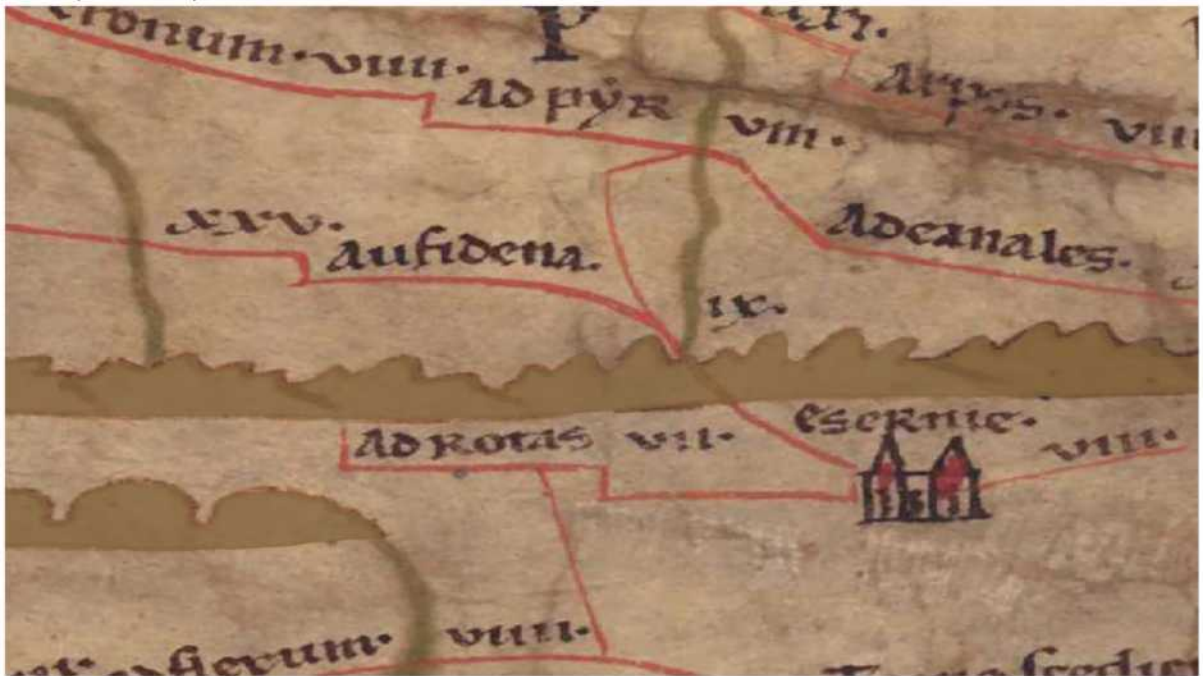 P
onum · viiii ·
AD pyR viii ·
Arpos · viii
xxv ·
Aufidena .
Adcanales .
ix ·
AD Rotas vii · esernie . viiii ·
viiii ·